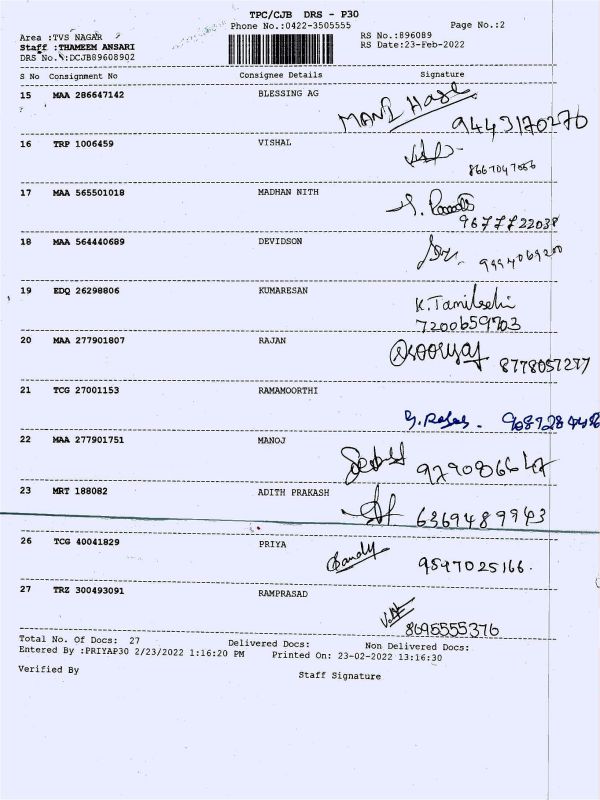 TPC/CJB DRS - P30
Phone No.:0422-3505555 Page No.:2
Area :TVS NAGAR RS No.:896089
Staff :THAMEEM ANSARI RS Date:23-Feb-2022
DRS No.:DCJB89608902
S No Consignment No Consignee Details Signature
15 MAA 286647142 BLESSING AG
MANI
9443170276
16 TRP 1006459 VISHAL
8667047066
17 MAA 565501018 MADHAN NITH
9677722038
18 MAA 564440689 DEVIDSON
9994069200
19 EDQ 26298806 KUMARESAN
K.Tamilselvi
7200659703
20 MAA 277901807 RAJAN
8778057277
21 TCG 27001153 RAMAMOORTHI
22 MAA 277901751 MANOJ
9790866647
23 MRT 188082 ADITH PRAKASH
6369489943
26 TCG 40041829 PRIYA
Sandy 9597025166.
27 TRZ 300493091 RAMPRASAD
8695555376
Total No. Of Docs: 27 Delivered Docs: Non Delivered Docs:
Entered By :PRIYAP30 2/23/2022 1:16:20 PM Printed On: 23-02-2022 13:16:30
Verified By Staff Signature